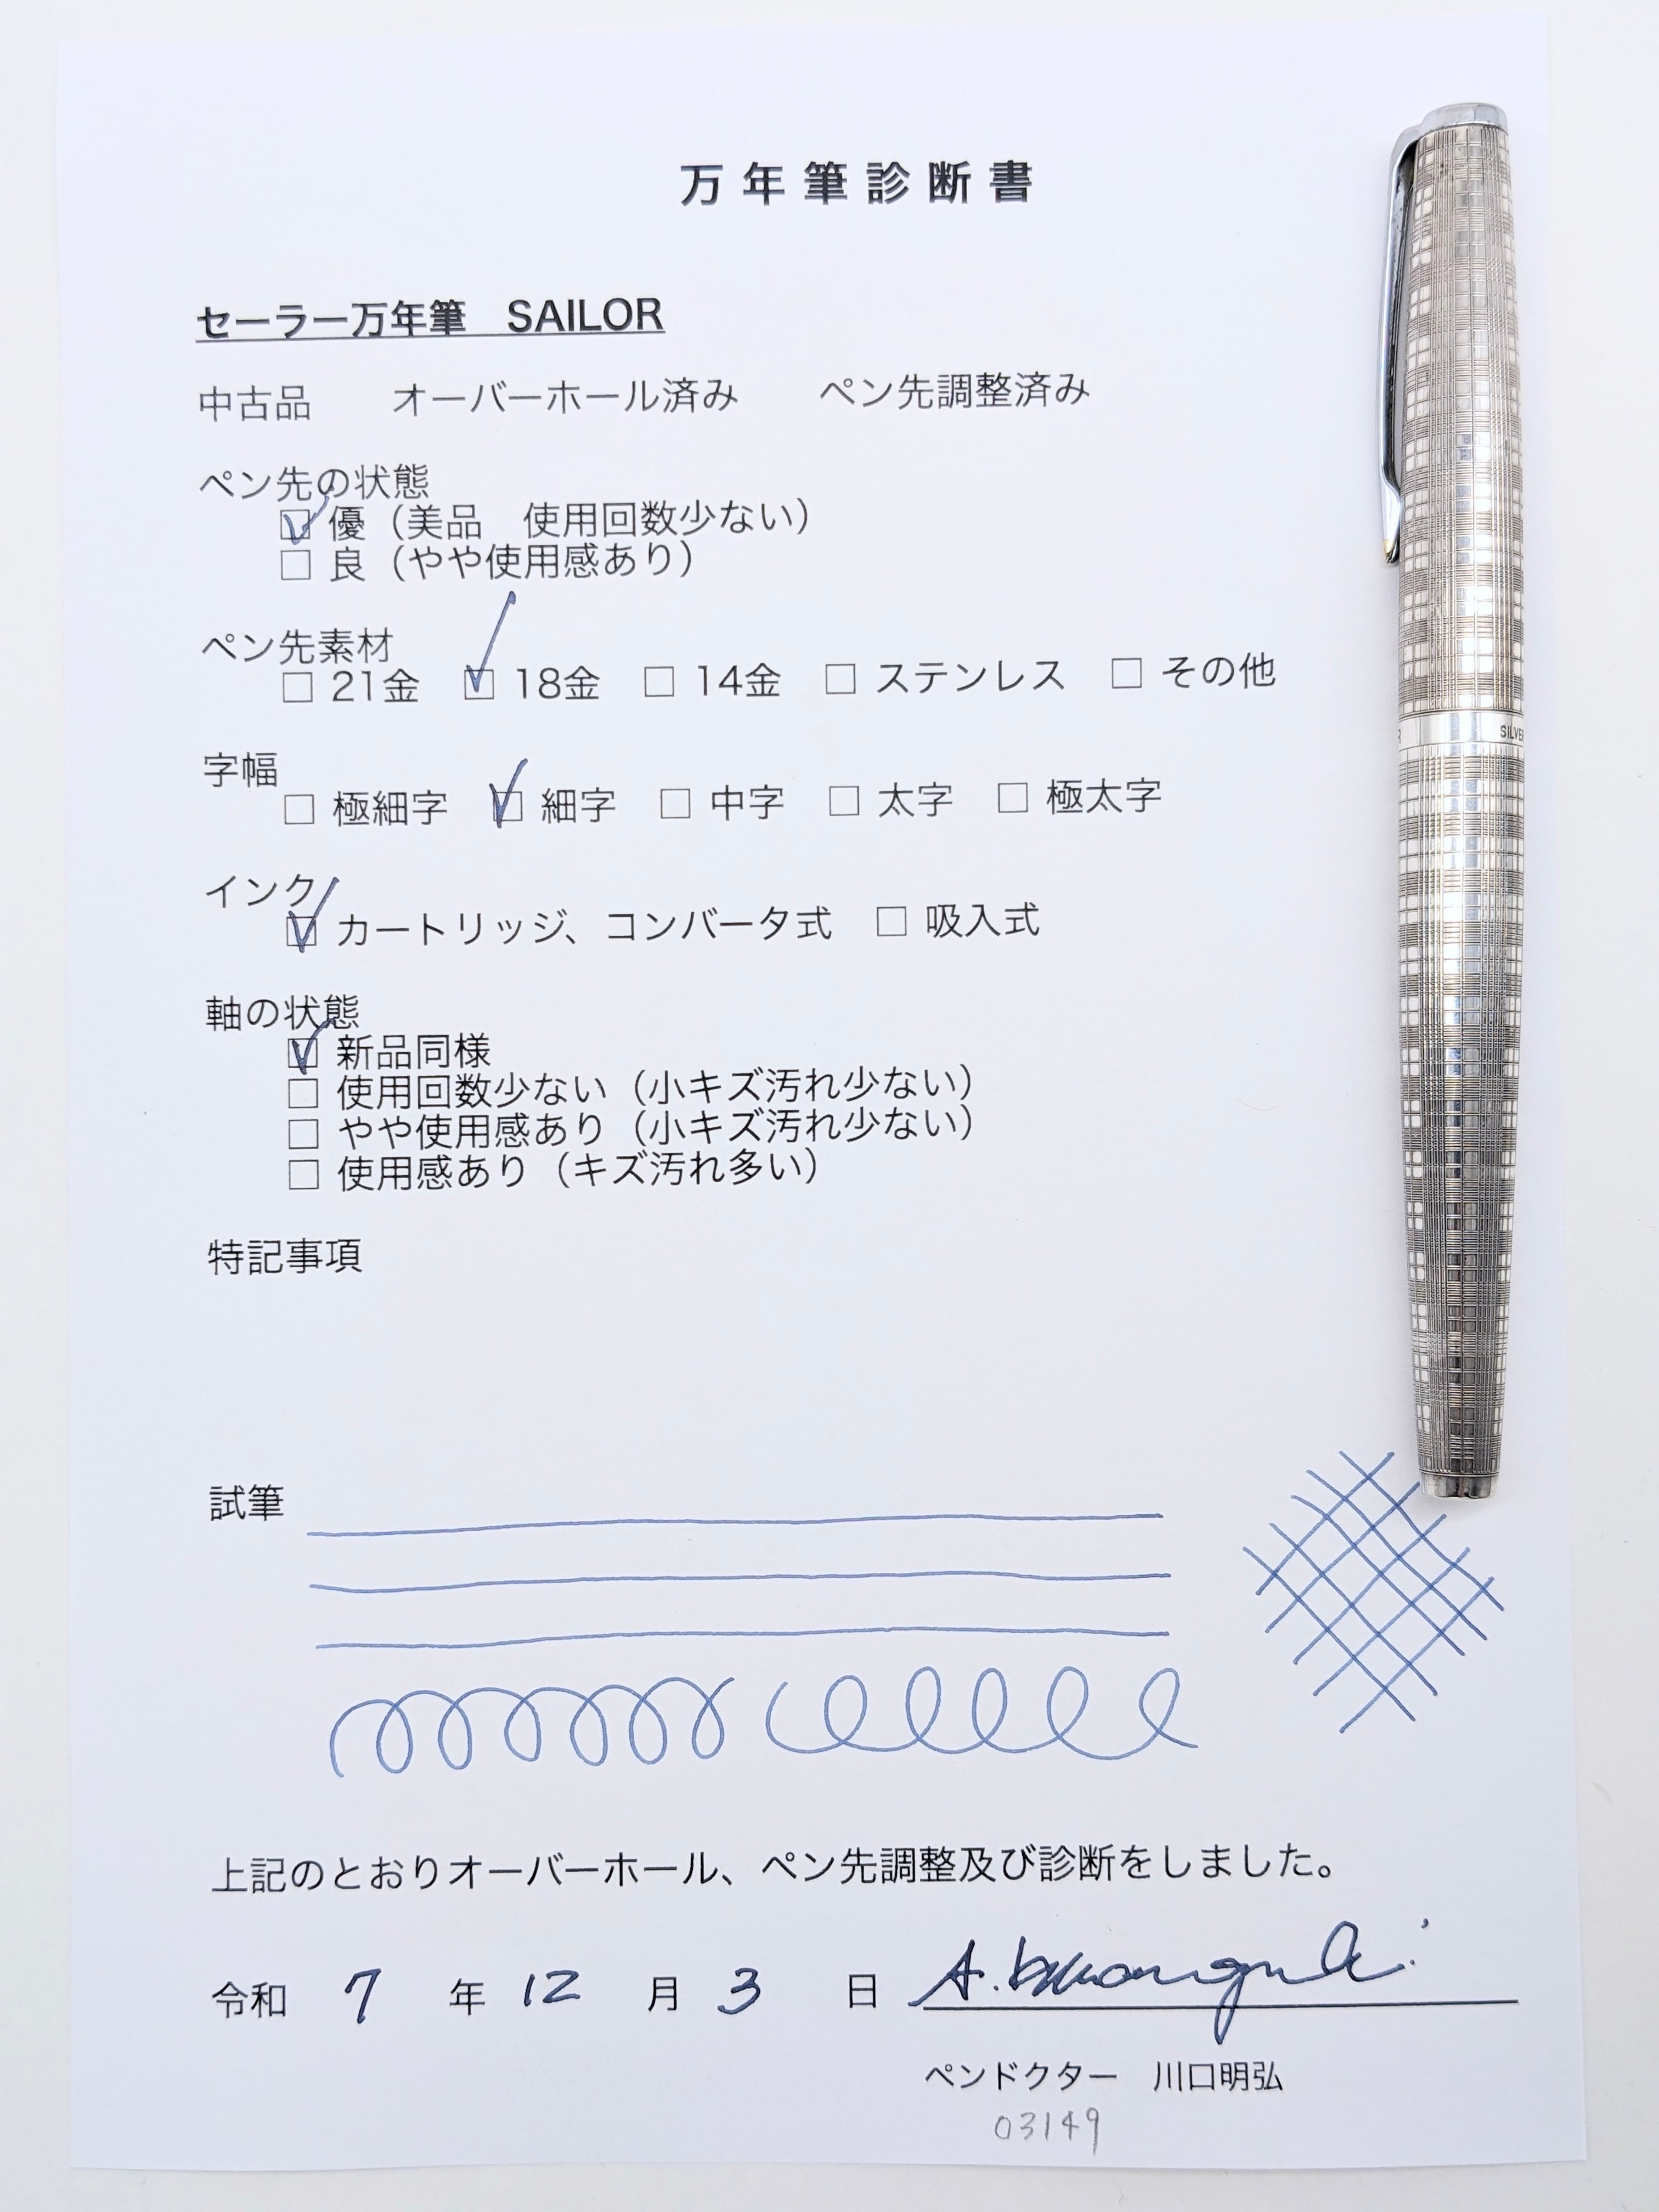 万年筆診断書
セーラー万年筆　SAILOR
中古品　　オーバーホール済み　　ペン先調整済み
ペン先の状態
☑ 優（美品　使用回数少ない）
□ 良（やや使用感あり）
ペン先素材
□ 21金　☑ 18金　□ 14金　□ ステンレス　□ その他
字幅
□ 極細字　☑ 細字　□ 中字　□ 太字　□ 極太字
インク
☑ カートリッジ、コンバータ式　□ 吸入式
軸の状態
☑ 新品同様
□ 使用回数少ない（小キズ汚れ少ない）
□ やや使用感あり（小キズ汚れ少ない）
□ 使用感あり（キズ汚れ多い）
特記事項
試筆
上記のとおりオーバーホール、ペン先調整及び診断をしました。
令和 7 年 12 月 3 日
ペンドクター　川口明弘
03149